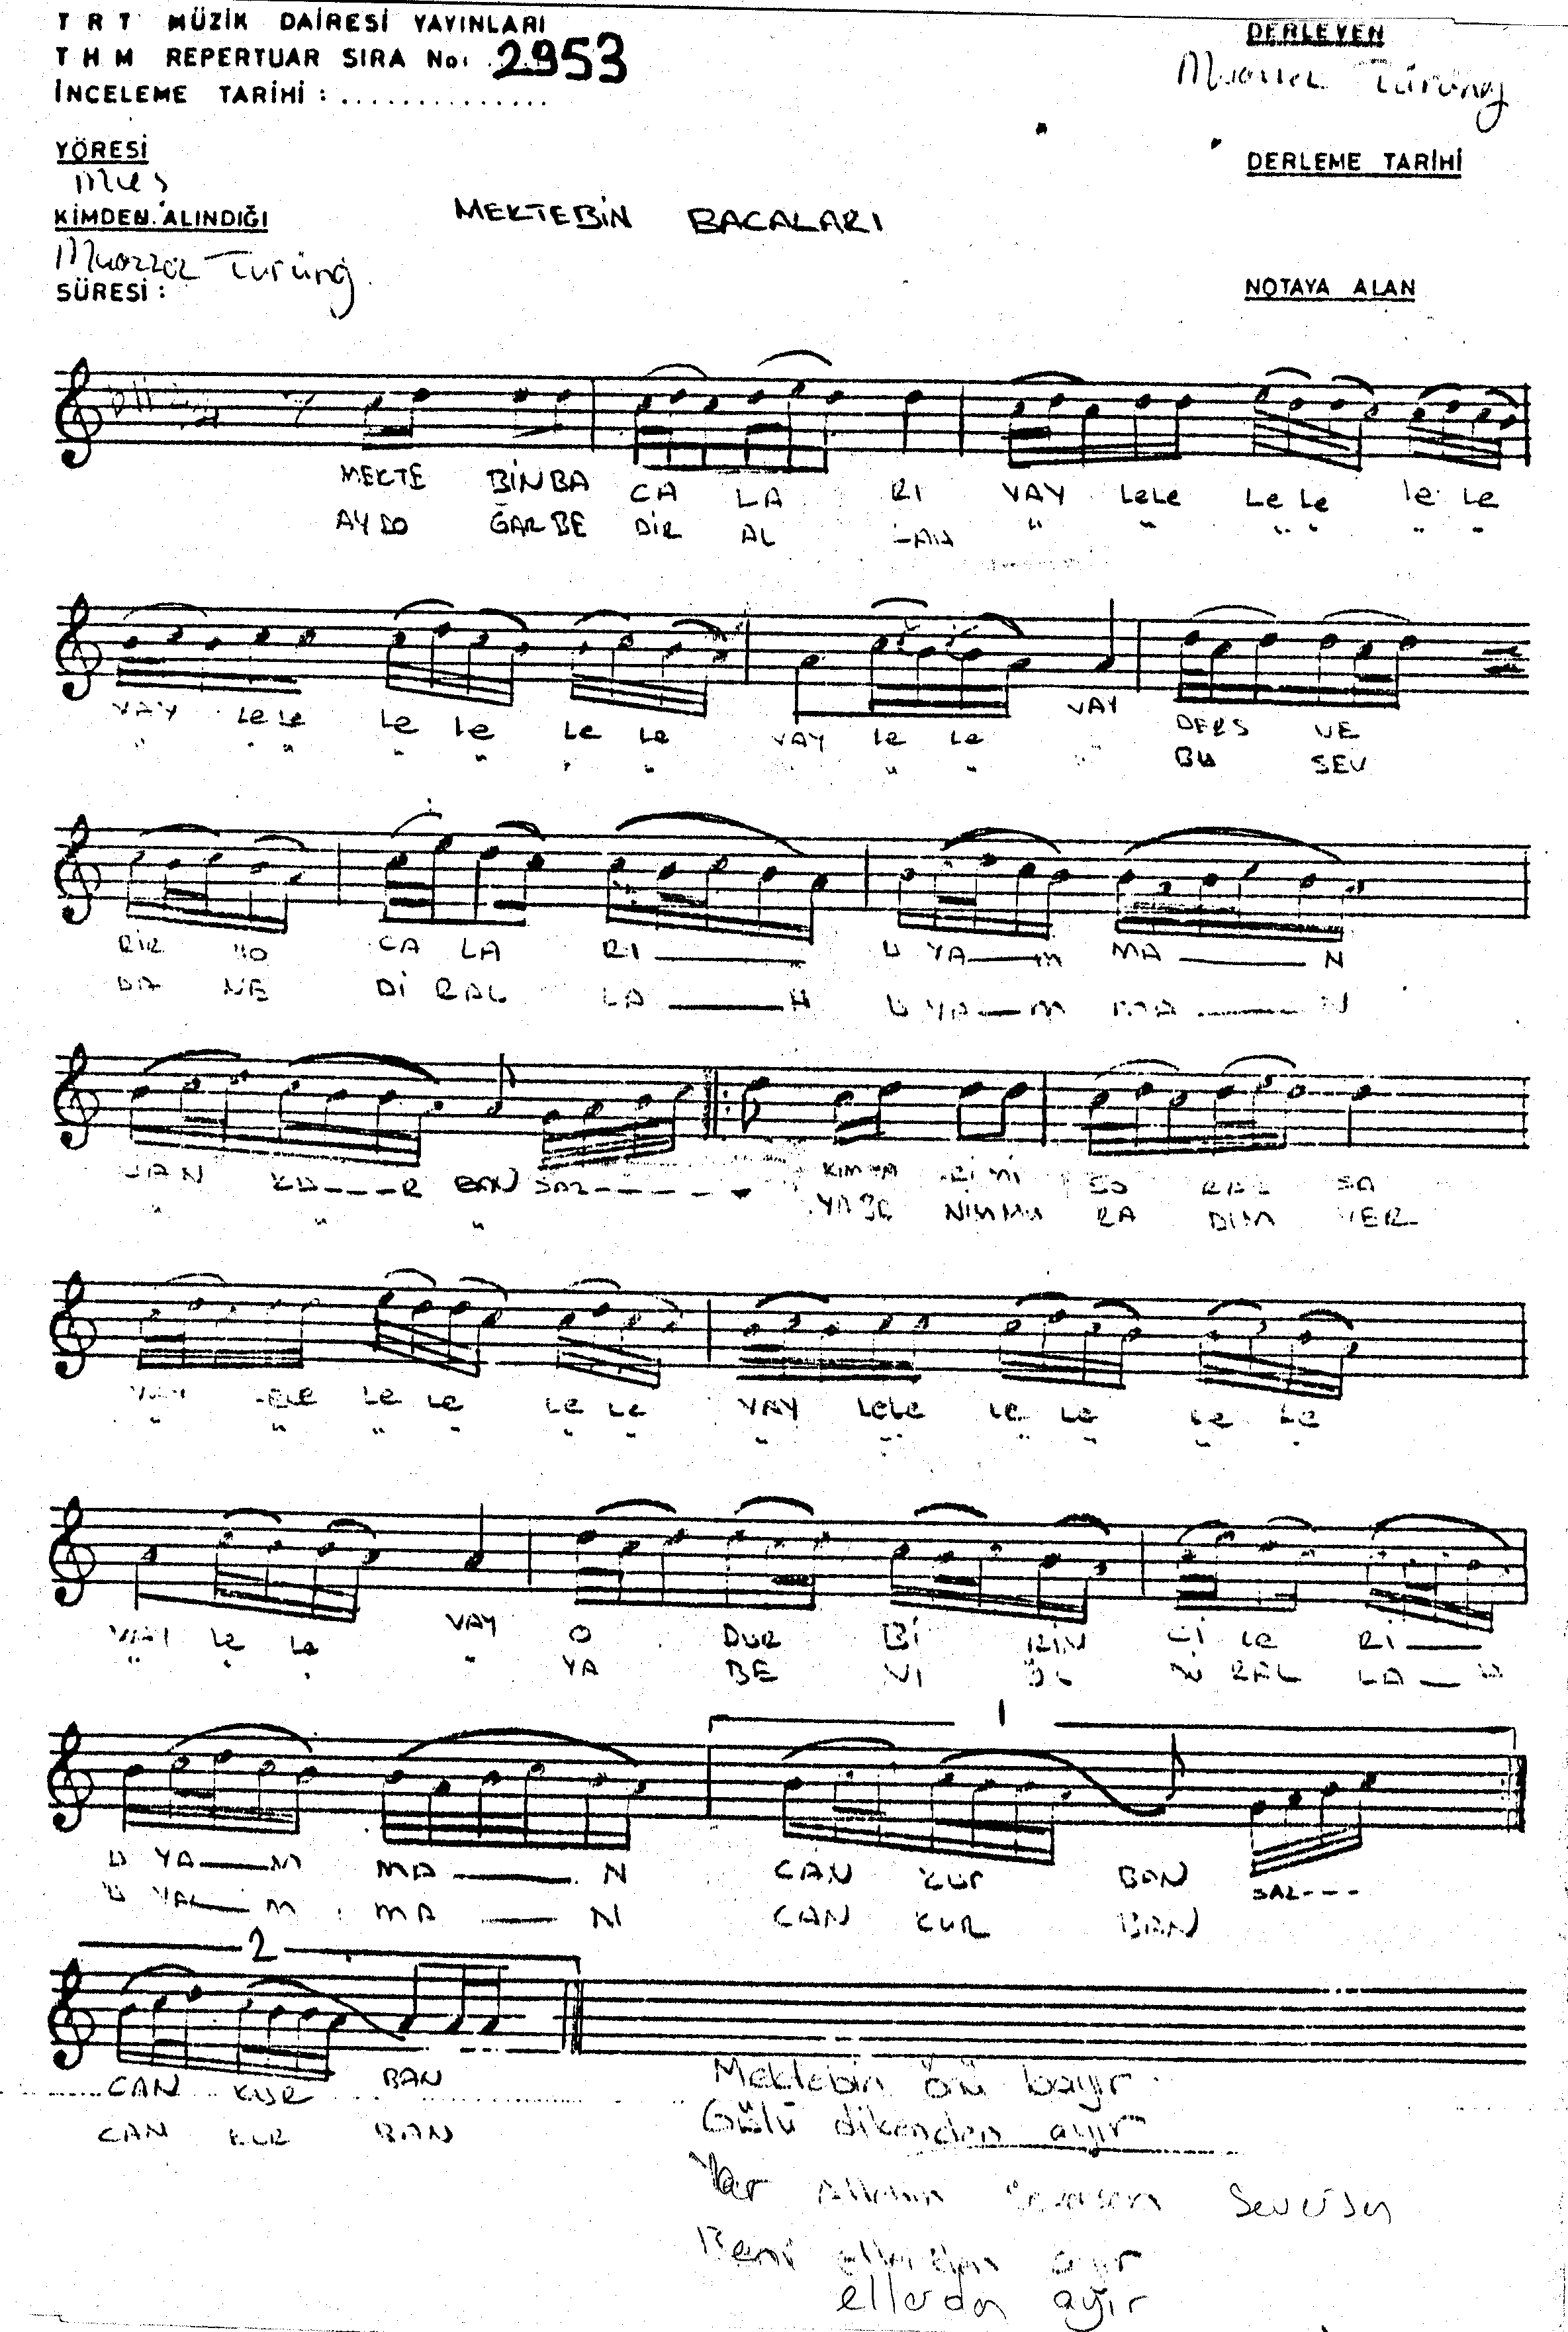 TRT MÜZİK DAİRESİ YAYINLARI
THM REPERTUAR SIRA No: 2953
İNCELEME TARİHİ : ...............
DERLEYEN
Türüng
YÖRESİ
Muş
DERLEME TARİHİ
KİMDEN ALINDIĞI
Muazzez Türüng
MEKTEBİN BACALARI
SÜRESİ :
NOTAYA ALAN
MEKTE BİNBA CA LA RI VAY LeLe Le Le le Le
AYDO ĞARBE DİR AL " " " " " "
VAY LeLe Le Le Le Le VAY le Le VAY DERS VE
" " " " " " " " BU SEV
RİR HO CA LA RI U YA—M MA — N
DA NE Dİ RAL LA — H U YA—M MA — N
CAN KU---R BAN SAZ-----
" " "
KIMYA RİMİ SO RAR SA
YABE NİMMU RA DIM VER
VAY LeLe Le Le Le Le VAY LeLe Le Le Le Le
" " " " " " " " " " " "
VAY le Le VAY O DUR Bİ RİN Cİ Le Rİ —
" " " " YA BE Nİ RAL LA — H
U YA—M MA — N CAN KUR BAN SAZ---
U YA—M MA — N CAN KUR BAN
1
2
CAN KUR BAN
CAN KUR BAN
Mektebin önü bayır
Gülü dikenden ayır
Yar seversen
Beni ellerden ayır
ellerden ayır